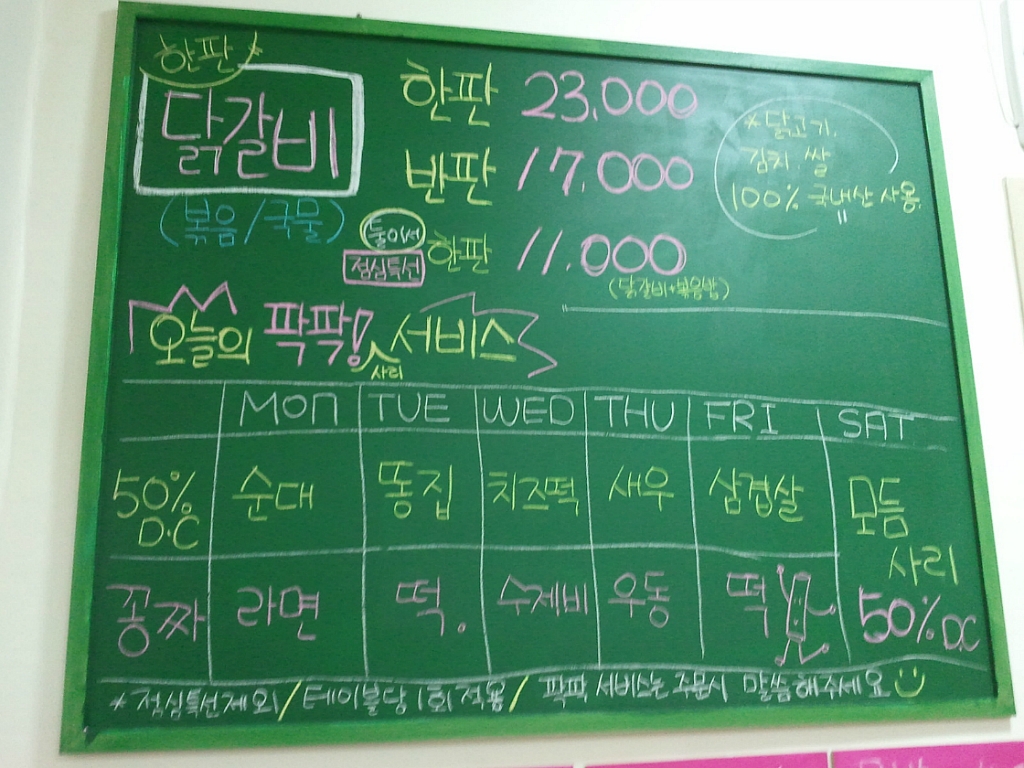 한판
닭갈비
(볶음/국물)
한판 23,000
반판 17,000
둘이서
점심특선
한판 11,000
(닭갈비+볶음밥)
*닭고기.
김치. 쌀
100% 국내산 사용.
오늘의 팍팍! 서비스
사리
MON TUE WED THU FRI SAT
50% D.C 순대 똥집 치즈떡 새우 삼겹살 모듬 사리 50% DC
공짜 라면 떡. 수제비 우동 떡
*점심특선제외/테이블당 1회 적용/ 팍팍 서비스는 주문시 말씀해주세요